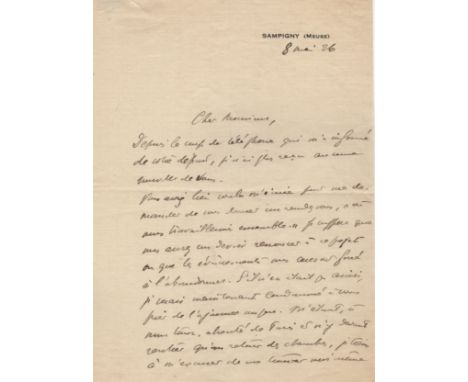 SAMPIGNY (MEUSE)
8 mai 26
Cher Monsieur,
Depuis le coup de téléphone qui m'a informé
de votre départ, je n'ai plus reçu aucune
nouvelle de vous.
Vous aviez bien voulu m'écrire pour me de-
mander de vous donner un rendez-vous, où
nous travaillerions ensemble. Je suppose que
vous aurez dû renoncer à ce projet
ou que les événements vous auront forcé
à l'abandonner. S'il n'en était pas ainsi,
je serais maintenant condamné à vous
prier de l'ajourner
mon tour, absenté de Paris et n'y devant
rentrer qu'au retour des chambres, je tiens
à m'excuser de me trouver moi-même